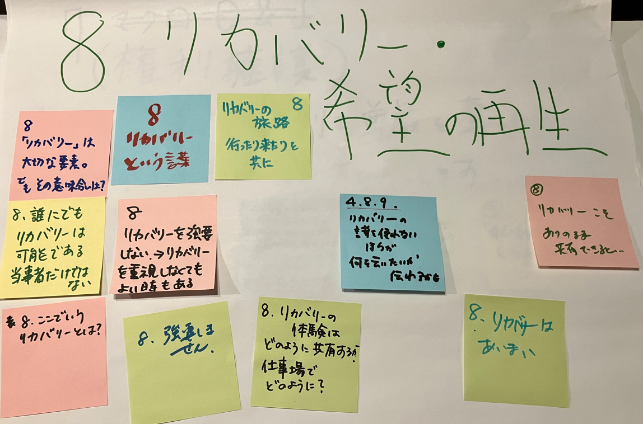 8 リカバリー・
希望の再生
8
「リカバリー」は
大切な要素。
でもその意味合いは?
8
リカバリー
という言葉
リカバリーの 8
旅路
行ったり来たりと
共に
8. 誰にでも
リカバリーは
可能である
当事者だけではない
8
リカバリーを強要
しない→リカバリー
を重視しなくても
よい時もある
4.8.9.
リカバリーの
言葉を使わない
ほうが
何を言いたいか
伝わるかも
⑧
リカバリーこそ
ありのまま
共有できると…
8. ここでいう
リカバリーとは?
8. 強要しま
せん.
8. リカバリーの
体験は
どのように共有するか?
仕事場で
どのように?
8. リカバリーは
あいまい